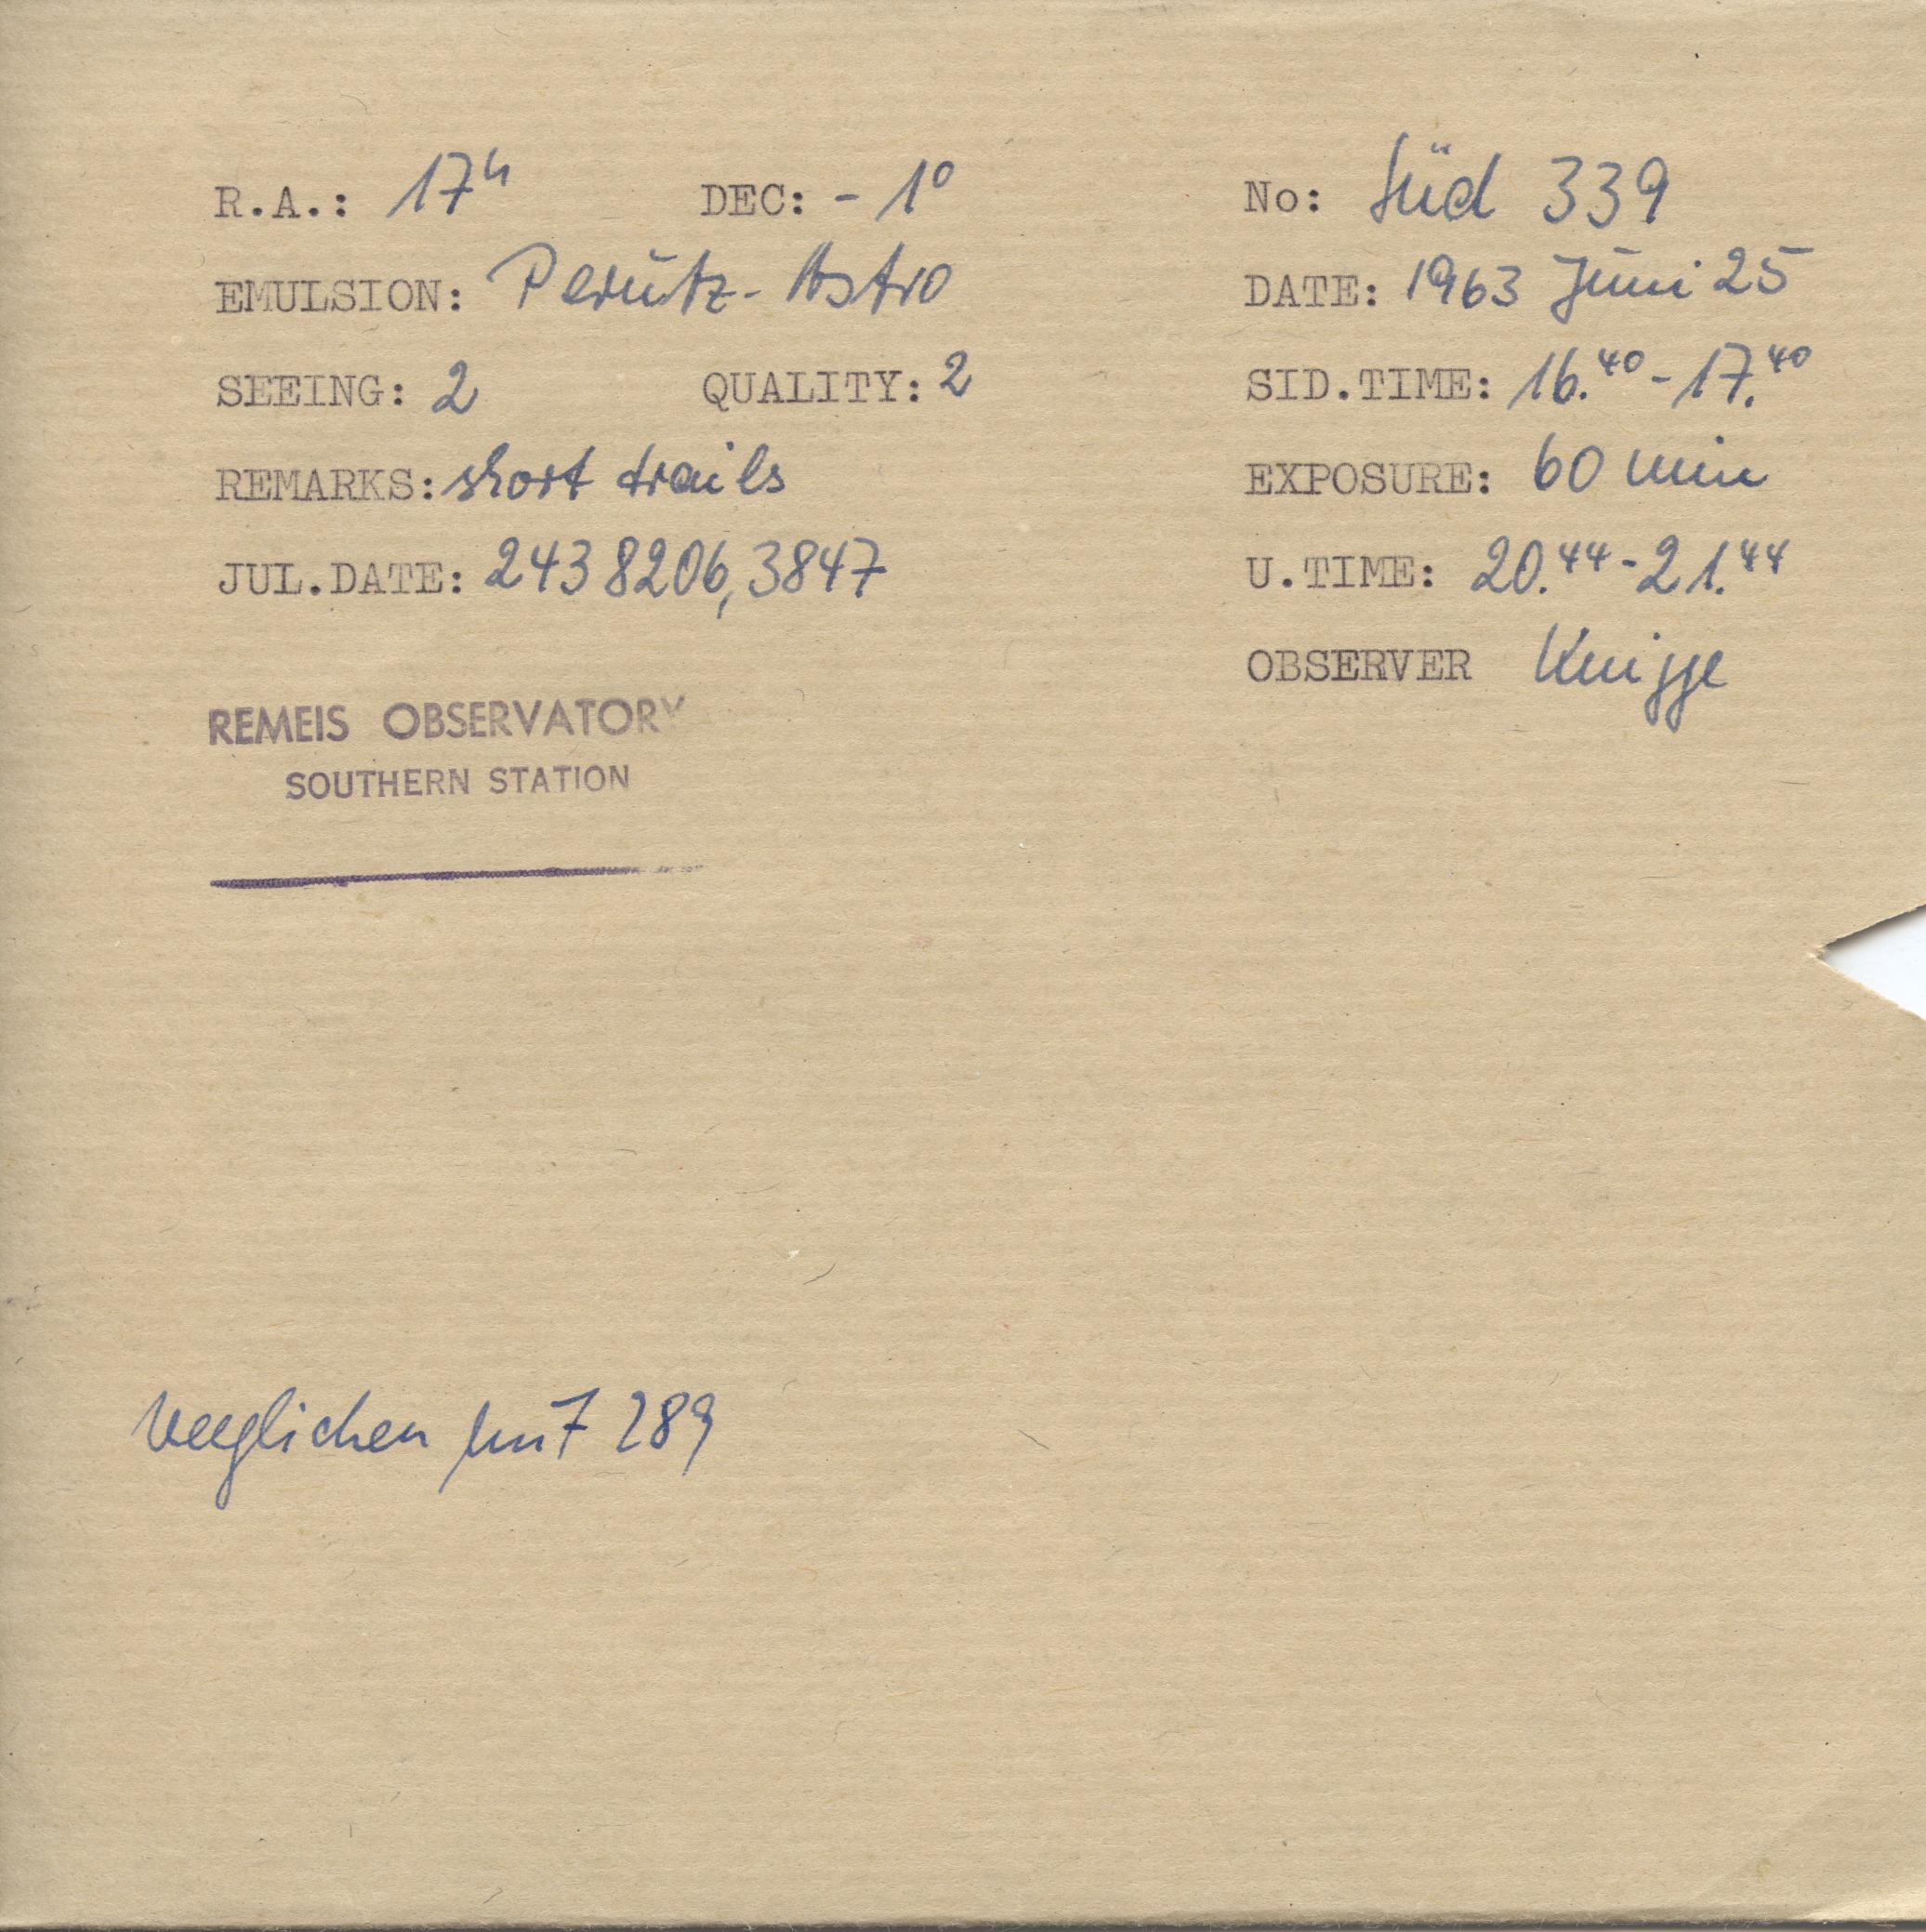 R.A.: 17h DEC: - 1° No: Süd 339
EMULSION: Perutz-Astro DATE: 1963 Juni 25
SEEING: 2 QUALITY: 2 SID.TIME: 16.40 - 17.40
REMARKS: short trails EXPOSURE: 60 min
JUL.DATE: 2438206,3847 U.TIME: 20.44 - 21.44
OBSERVER Knigge
REMEIS OBSERVATORY
SOUTHERN STATION
verglichen mit 289